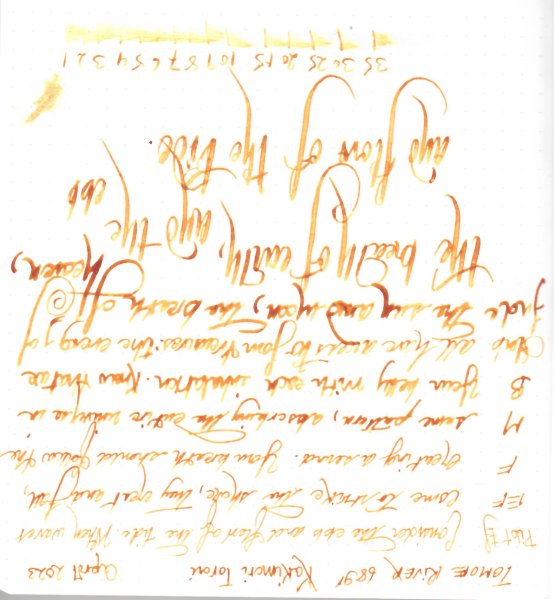 TOMOE RIVER 68g Kakimori Torori April 2023
Pilot EF Consider the ebb and flow of the tide. When waves
EF come to strike the shore, they crest and fall,
F creating a sound. Your breath should follow the
M same pattern, absorbing the entire universe in
B your belly with each inhalation. Know that we
all have access to four treasures: the energy of
the sun and moon, the breath of heaven,
the breath of earth, and the ebb
and flow of the tide.
35 30 25 20 15 10 9 8 7 6 5 4 3 2 1